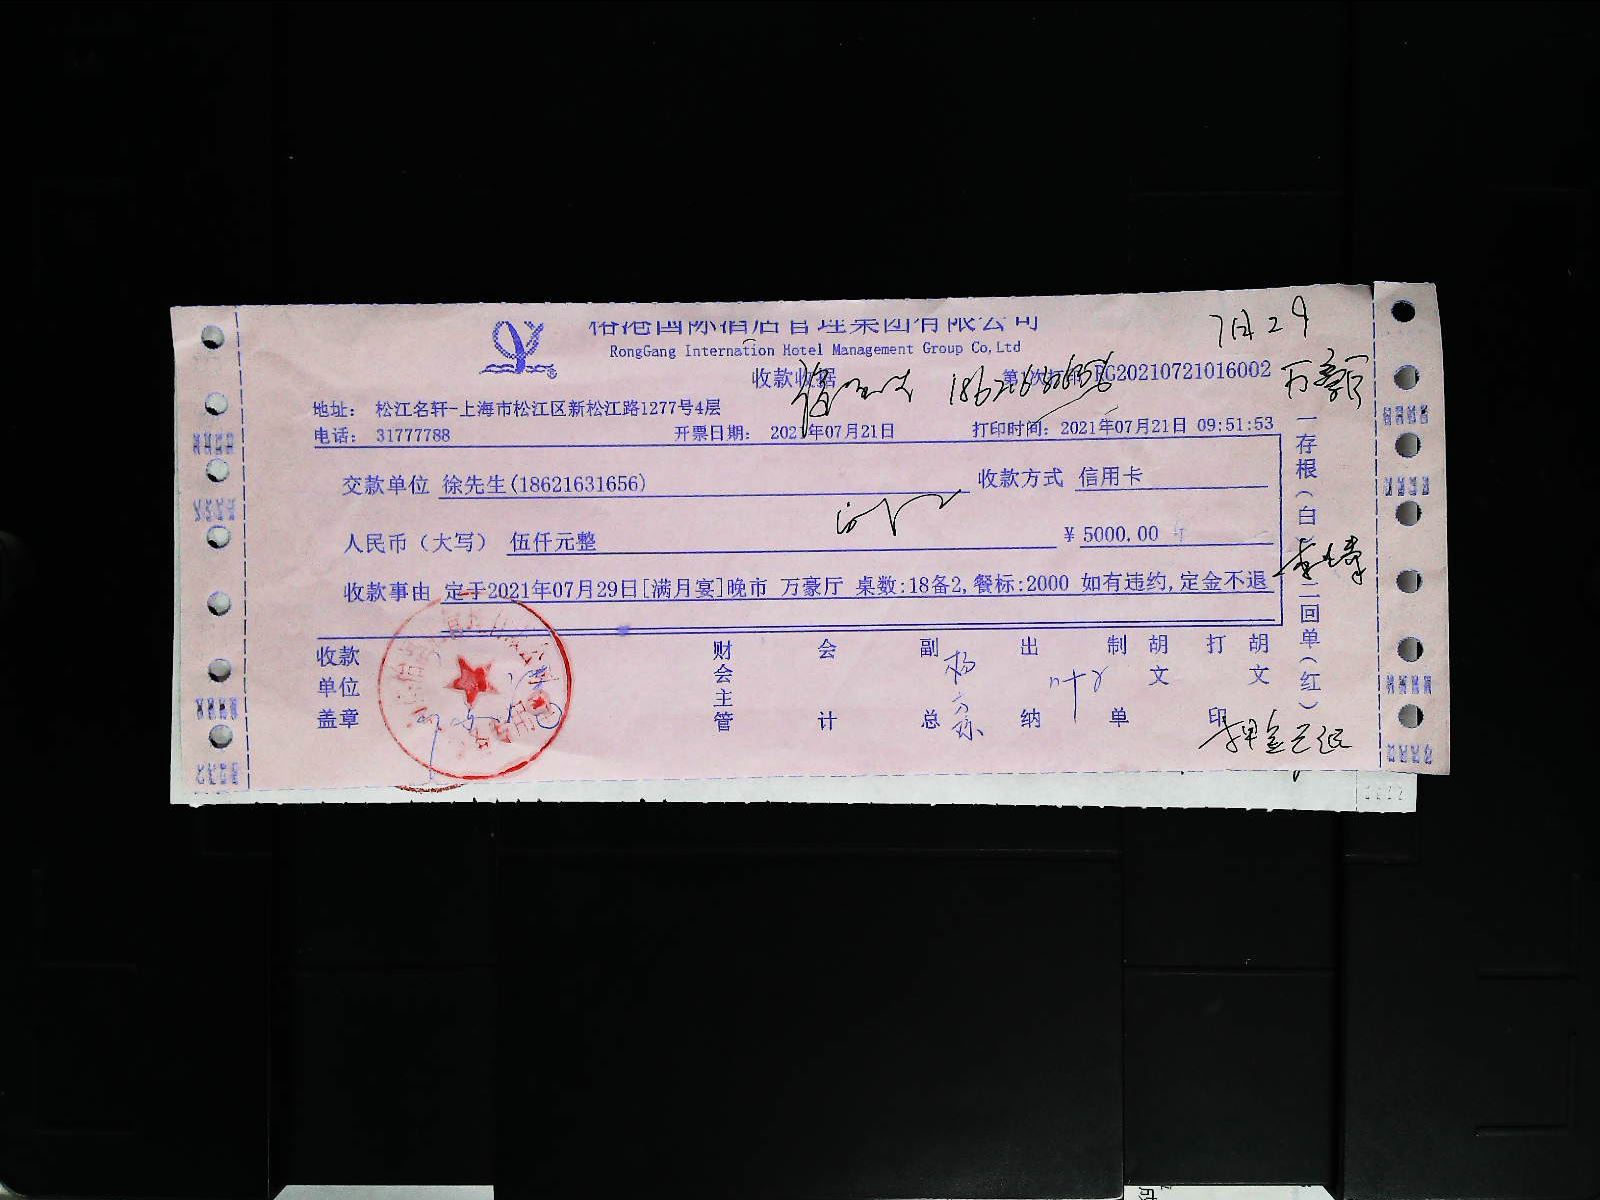 榕港国际酒店管理集团有限公司
RongGang Internation Hotel Management Group Co,Ltd
7月29
收款收据 RG20210721016002 万豪厅
地址: 松江名轩-上海市松江区新松江路1277号4层
电话: 31777788 开票日期: 2021年07月21日 打印时间: 2021年07月21日 09:51:53
交款单位 徐先生(18621631656) 收款方式 信用卡
人民币(大写) 伍仟元整 ¥ 5000.00
收款事由 定于2021年07月29日[满月宴]晚市 万豪厅 桌数:18备2,餐标:2000 如有违约,定金不退
一存根(白) 二回单(红)
收款单位盖章 财会主管 会计 副总 出纳 制单 胡文 打印 胡文